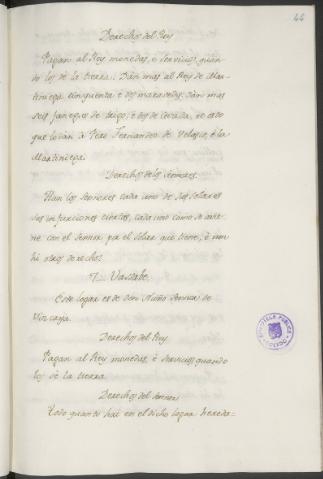 44
Derechos del Rey
Pagan al Rey monedas, è servicios, quan-
do los de la tierra. Dan mas al Rey de Mar-
tiniega cinquenta è dos maravedis. Dan mas
seis fanegas de trigo, è dos de cevada, es esto
que lo dan à Pero Fernandez de Velasco, è la
Martiniega.
Derechos de los Señores.
Han los señores cada uno de sus solares
sus infurciones ciertas, cada uno como se avie-
ne con el señor por el solar que tiene, è non
hi otros derechos.
7. 
Este logar es de don Nuño señor de
Vizcaya.
Derechos del Rey
Pagan al Rey monedas, è servicios quando
los de la tierra
Derechos del señor
Todo quanto hai en el dicho logar hereda-
BIBLIOTECA PUBLICA
TOLEDO